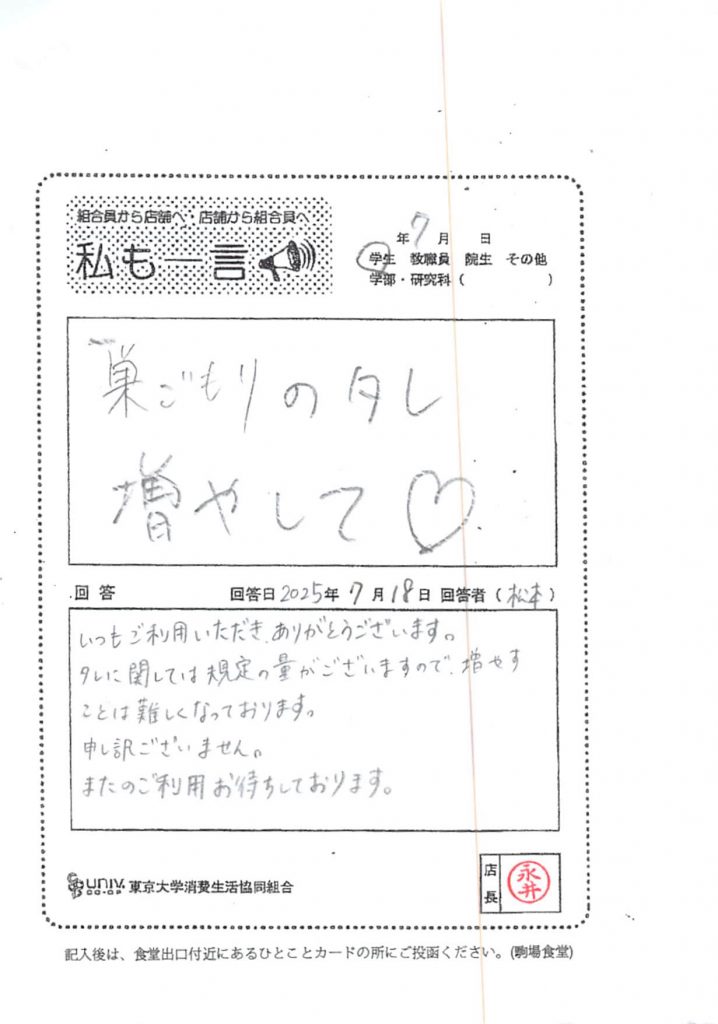 組合員から店舗へ・店舗から組合員へ
私も一言
年7月 日
学生 教職員 院生 その他
学部・研究科( )
巣ごもりのタレ
増やして♡
回答 回答日2025年7月18日 回答者(松本)
いつもご利用いただき、ありがとうございます。
タレに関しては規定の量がございますので、増やす
ことは難しくなっております。
申し訳ございません。
またのご利用お待ちしております。
univ. CO-OP 東京大学消費生活協同組合
店長 永井
記入後は、食堂出口付近にあるひとことカードの所にご投函ください。(駒場食堂)